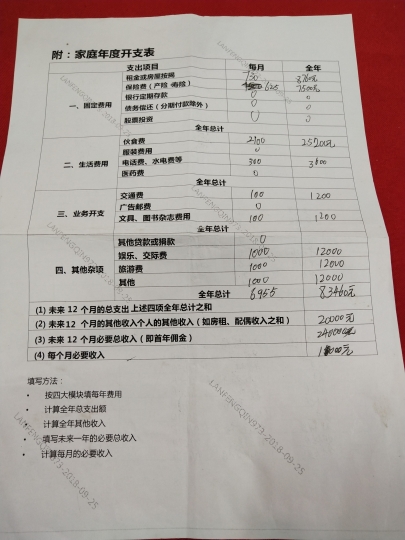 附：家庭年度开支表
支出项目 每月 全年
一、固定费用
租金或房屋按揭 730 8760元
保险费（产险·寿险） 625 7500元
银行定期存款 0 0
债务偿还（分期付款除外） 0 0
股票投资 0 0
全年总计
二、生活费用
伙食费 25700元
服装费用 0
电话费、水电费等 300
医药费 0
全年总计
三、业务开支
交通费 100 1200
广告邮费 0
文具、图书杂志费用 100 1200
全年总计
四、其他杂项
其他贷款或捐款 0
娱乐、交际费 1000 12000
旅游费 1000 12000
其他 1000 12000
全年总计 6955 83460元
(1) 未来 12 个月的总支出 上述四项全年总计之和
(2) 未来 12 个月的其他收入个人的其他收入（如房租、配偶收入之和） 20000元
(3) 未来 12 个月必要总收入（即首年佣金）
(4) 每个月必要收入
填写方法：
• 按四大模块填每年费用
• 计算全年总支出额
• 计算全年其他收入
• 填写未来一年的必要总收入
• 计算每月的必要收入
LANFENGQIN973-2018-09-25